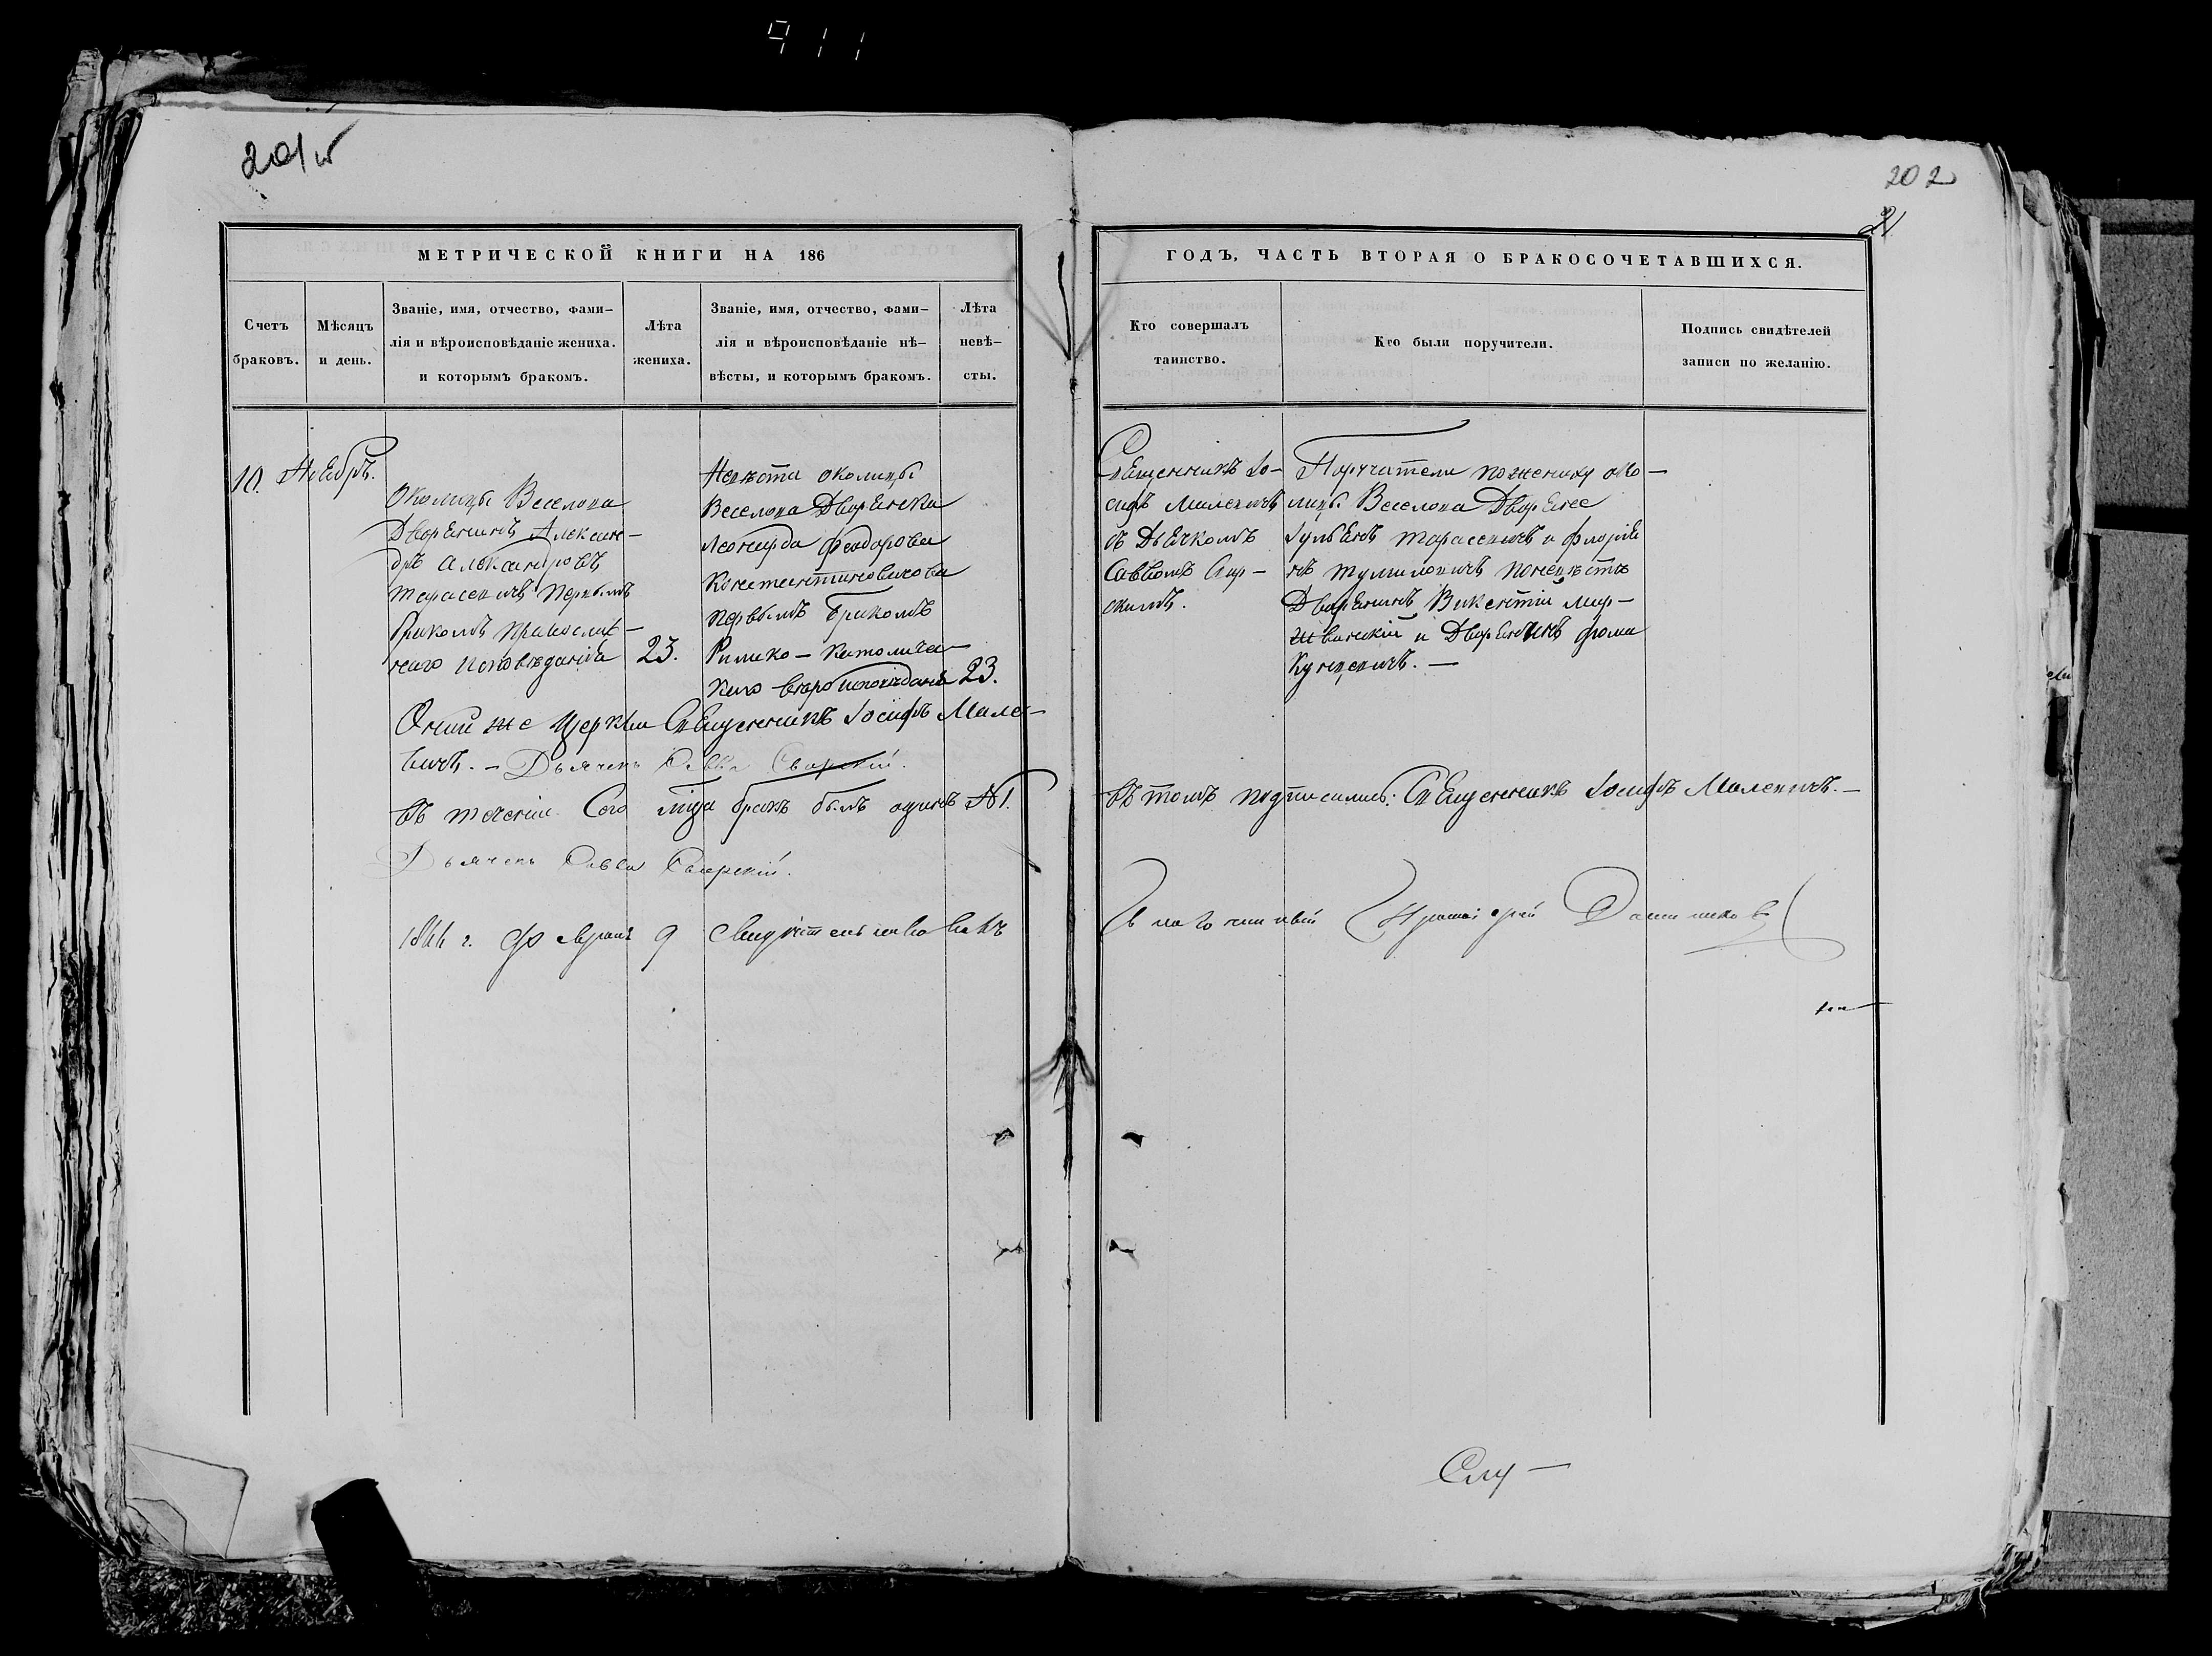 911
202
21
МЕТРИЧЕСКОЙ КНИГИ НА 186
Счетъ браковъ.
Мѣсяцъ и день.
Званіе, имя, отчество, фами-
лія и вѣроисповѣданіе жениха.
и которымъ бракомъ.
Лѣта жениха.
Званіе, имя, отчество, фами-
лія и вѣроисповѣданіе нѣ-
вѣсты, и которымъ бракомъ.
Лѣта невѣ-
сты.
10. Ноебръ.
Околицы Веселова
Дворенинъ Алексан-
дръ Александровъ
Тарасевичъ первымъ
бракомъ православ-
наго исповѣданія
23.
Невѣста околицы
Веселова Дворенска
Леонарда Феодорова
Константиновичова
первымъ бракомъ
Римско-католиче-
каго вѣроисповѣданія
23.
Оний же церкви Свещенникъ Іосифъ Мале-
вичъ. – Дьячекъ Савва
въ теченіи Сего года бракъ былъ одинъ №1.
Дьячекъ Савва
г. Февраля 9 Свидѣтельствовалъ
ГОДЪ, ЧАСТЬ ВТОРАЯ О БРАКОСОЧЕТАВШИХСЯ.
Кто совершалъ
таинство.
Кто были поручители.
Подпись свидѣтелей
записи по желанію.
Свещенникъ Іо-
сифъ Малевичъ
съ Дьечкомъ
Саввомъ
Поручатели по жениху око-
лицы Веселова Дворене
Тарасевичъ и Флорiе
нъ по невѣстѣ
Дворенинъ Викентій Мар-
и Дворенинъ Фома
Куncевичъ. –
въ томъ подписались: Свещенникъ Іосифъ Малевичъ. –
Благочинный Протоіерей